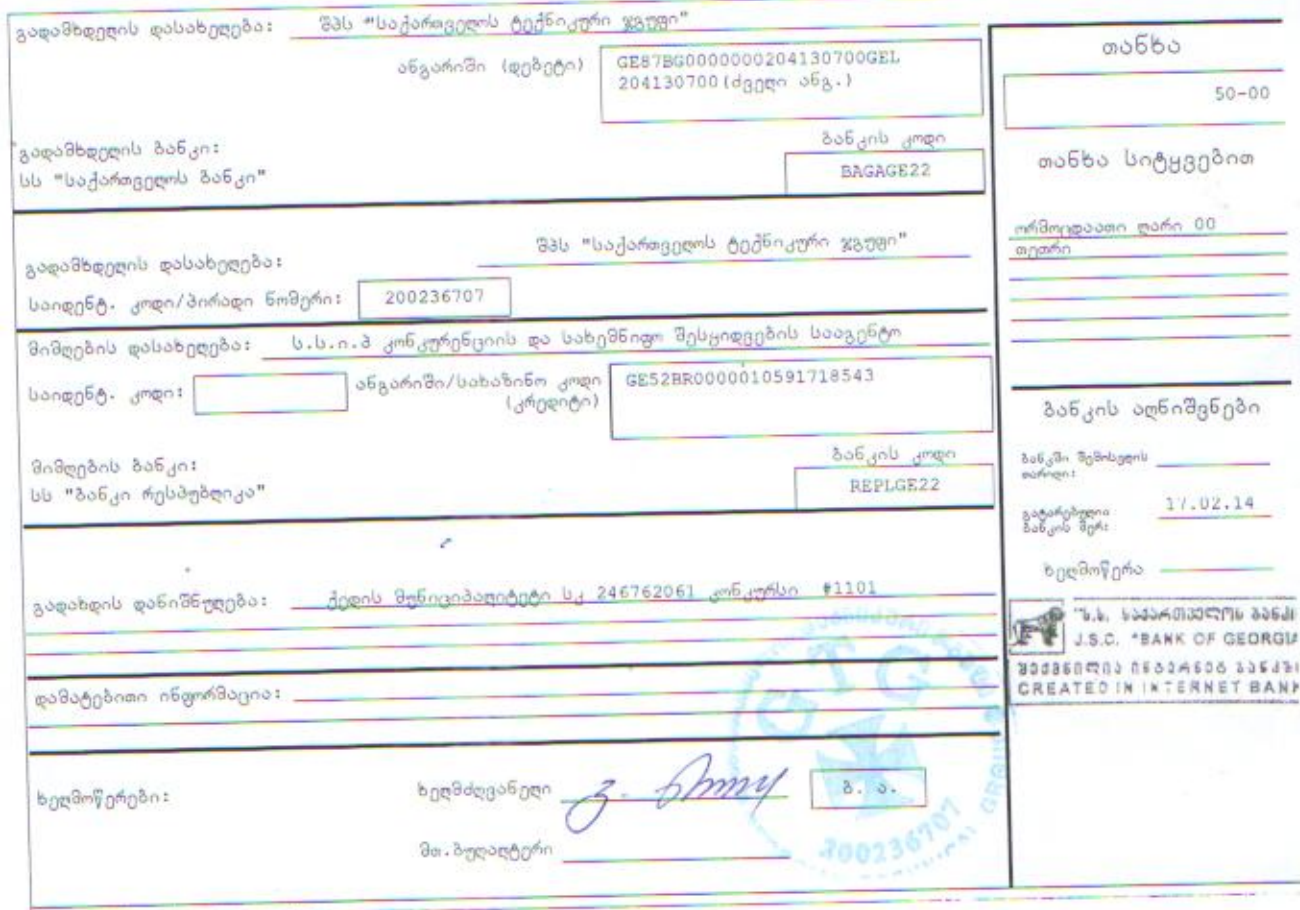 გადამხდელის დასახელება: შპს "საქართველოს ტექნიკური ჯგუფი"
ანგარიში (დებეტი) GE87BG0000000204130700GEL
204130700(ძველი ანგ.)
გადამხდელის ბანკი:
სს "საქართველოს ბანკი"
ბანკის კოდი
BAGAGE22
გადამხდელის დასახელება: შპს "საქართველოს ტექნიკური ჯგუფი"
საიდენტ. კოდი/პირადი ნომერი: 200236707
მიმღების დასახელება: ს.ს.ი.პ კონკურენციის და სახემნიფო შესყიდვების სააგენტო
საიდენტ. კოდი: ანგარიში/სახაზინო კოდი GE52BR0000010591718543
(კრედიტი)
მიმღების ბანკი:
სს "ბანკი რესპუბლიკა"
ბანკის კოდი
REPLGE22
გადახდის დანიშნულება: ქედის მუნიციპალიტეტი სკ 246762061 კონკურსი #1101
დამატებითი ინფორმაცია:
ხელმოწერები: ხელმძღვანელი ბ. ა.
მთ.ბუღალტერი
თანხა
50-00
თანხა სიტყვებით
ორმოცდაათი ლარი 00
თეთრი
ბანკის აღნიშვნები
ბანკში შემოსვლის
თარიღი:
გატარებულია
ბანკის მერ: 17.02.14
ხელმოწერა
"ს.ს. საქართველოს ბანკი
J.S.C. "BANK OF GEORGIA
შექმნილია ინტერნეტ ბანკში
CREATED IN INTERNET BANK
GTG
200236707